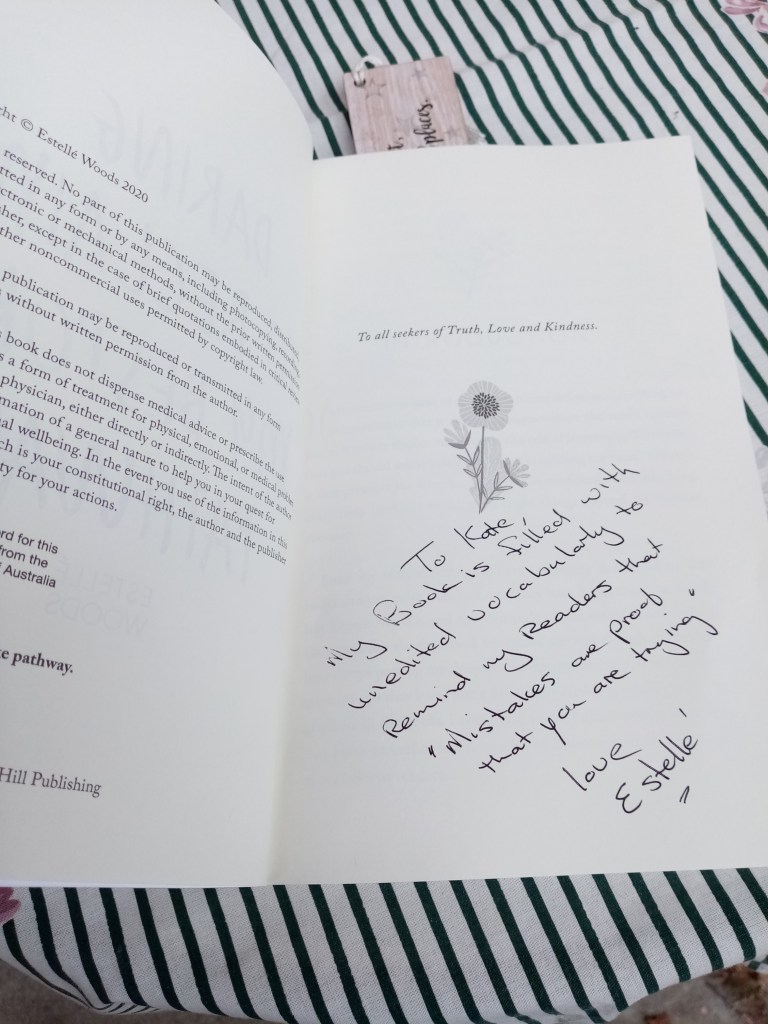 © Estellé Woods 2020
reserved. No part of this publication may be reproduced,
in any form or by any means, including photocopying,
or mechanical methods, without the prior written
except in the case of brief quotations embodied in critical
noncommercial uses permitted by copyright law.
publication may be reproduced or transmitted in any form
without written permission from the author.
book does not dispense medical advice or prescribe the use
a form of treatment for physical, emotional, or medical
physician, either directly or indirectly. The intent of the author
of a general nature to help you in your quest for
wellbeing. In the event you use of the information in this
is your constitutional right, the author and the publisher
for your actions.
for this
from the
Australia
pathway.
Hill Publishing
places.
To all seekers of Truth, Love and Kindness.
To Kate,
"My Book is filled with
unedited vocabularly to
Remind my Readers that
"Mistakes are proof
that you are trying"
love
Estellé
DARING
ESTELLE
WOODS